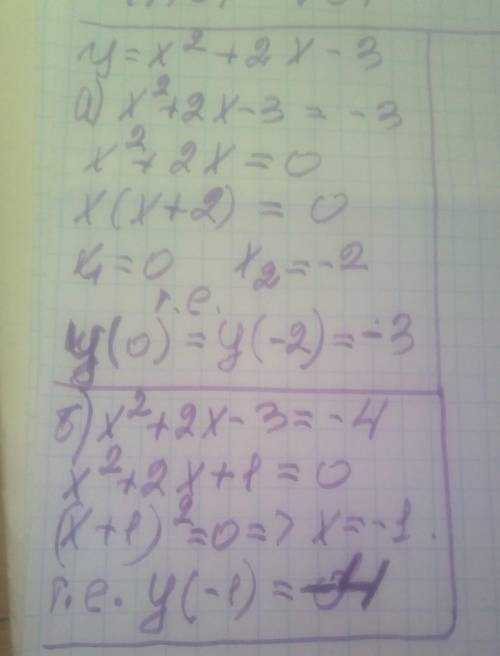 y = x² + 2x - 3
а) x² + 2x - 3 = -3
x² + 2x = 0
x(x+2) = 0
x₁ = 0 x₂ = -2
т.е.
y(0) = y(-2) = -3
б) x² + 2x - 3 = -4
x² + 2x + 1 = 0
(x+1)² = 0 => x = -1.
т.е. y(-1) = -4